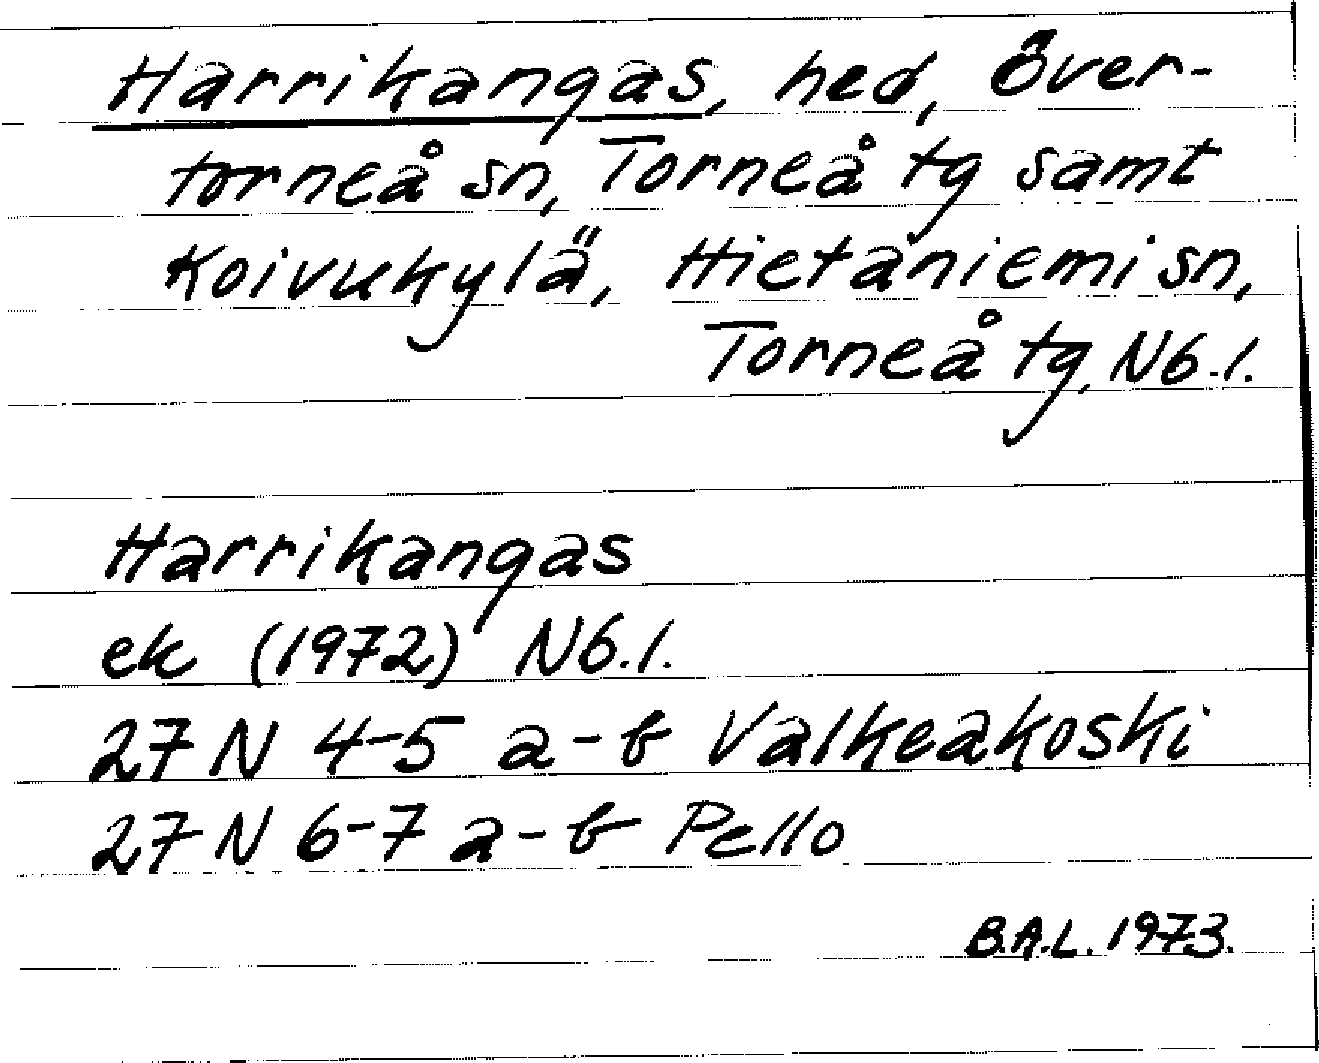 Harrikangas, hed, Över-
torneå sn, Torneå tg samt
Koivukylä, Hietaniemi sn,
Torneå tg, N6.1.
Harrikangas
ek (1972) N6.1.
27 N 4-5 a-b Valkeakoski
27 N 6-7 a-b Pello
B.A.L. 1973.